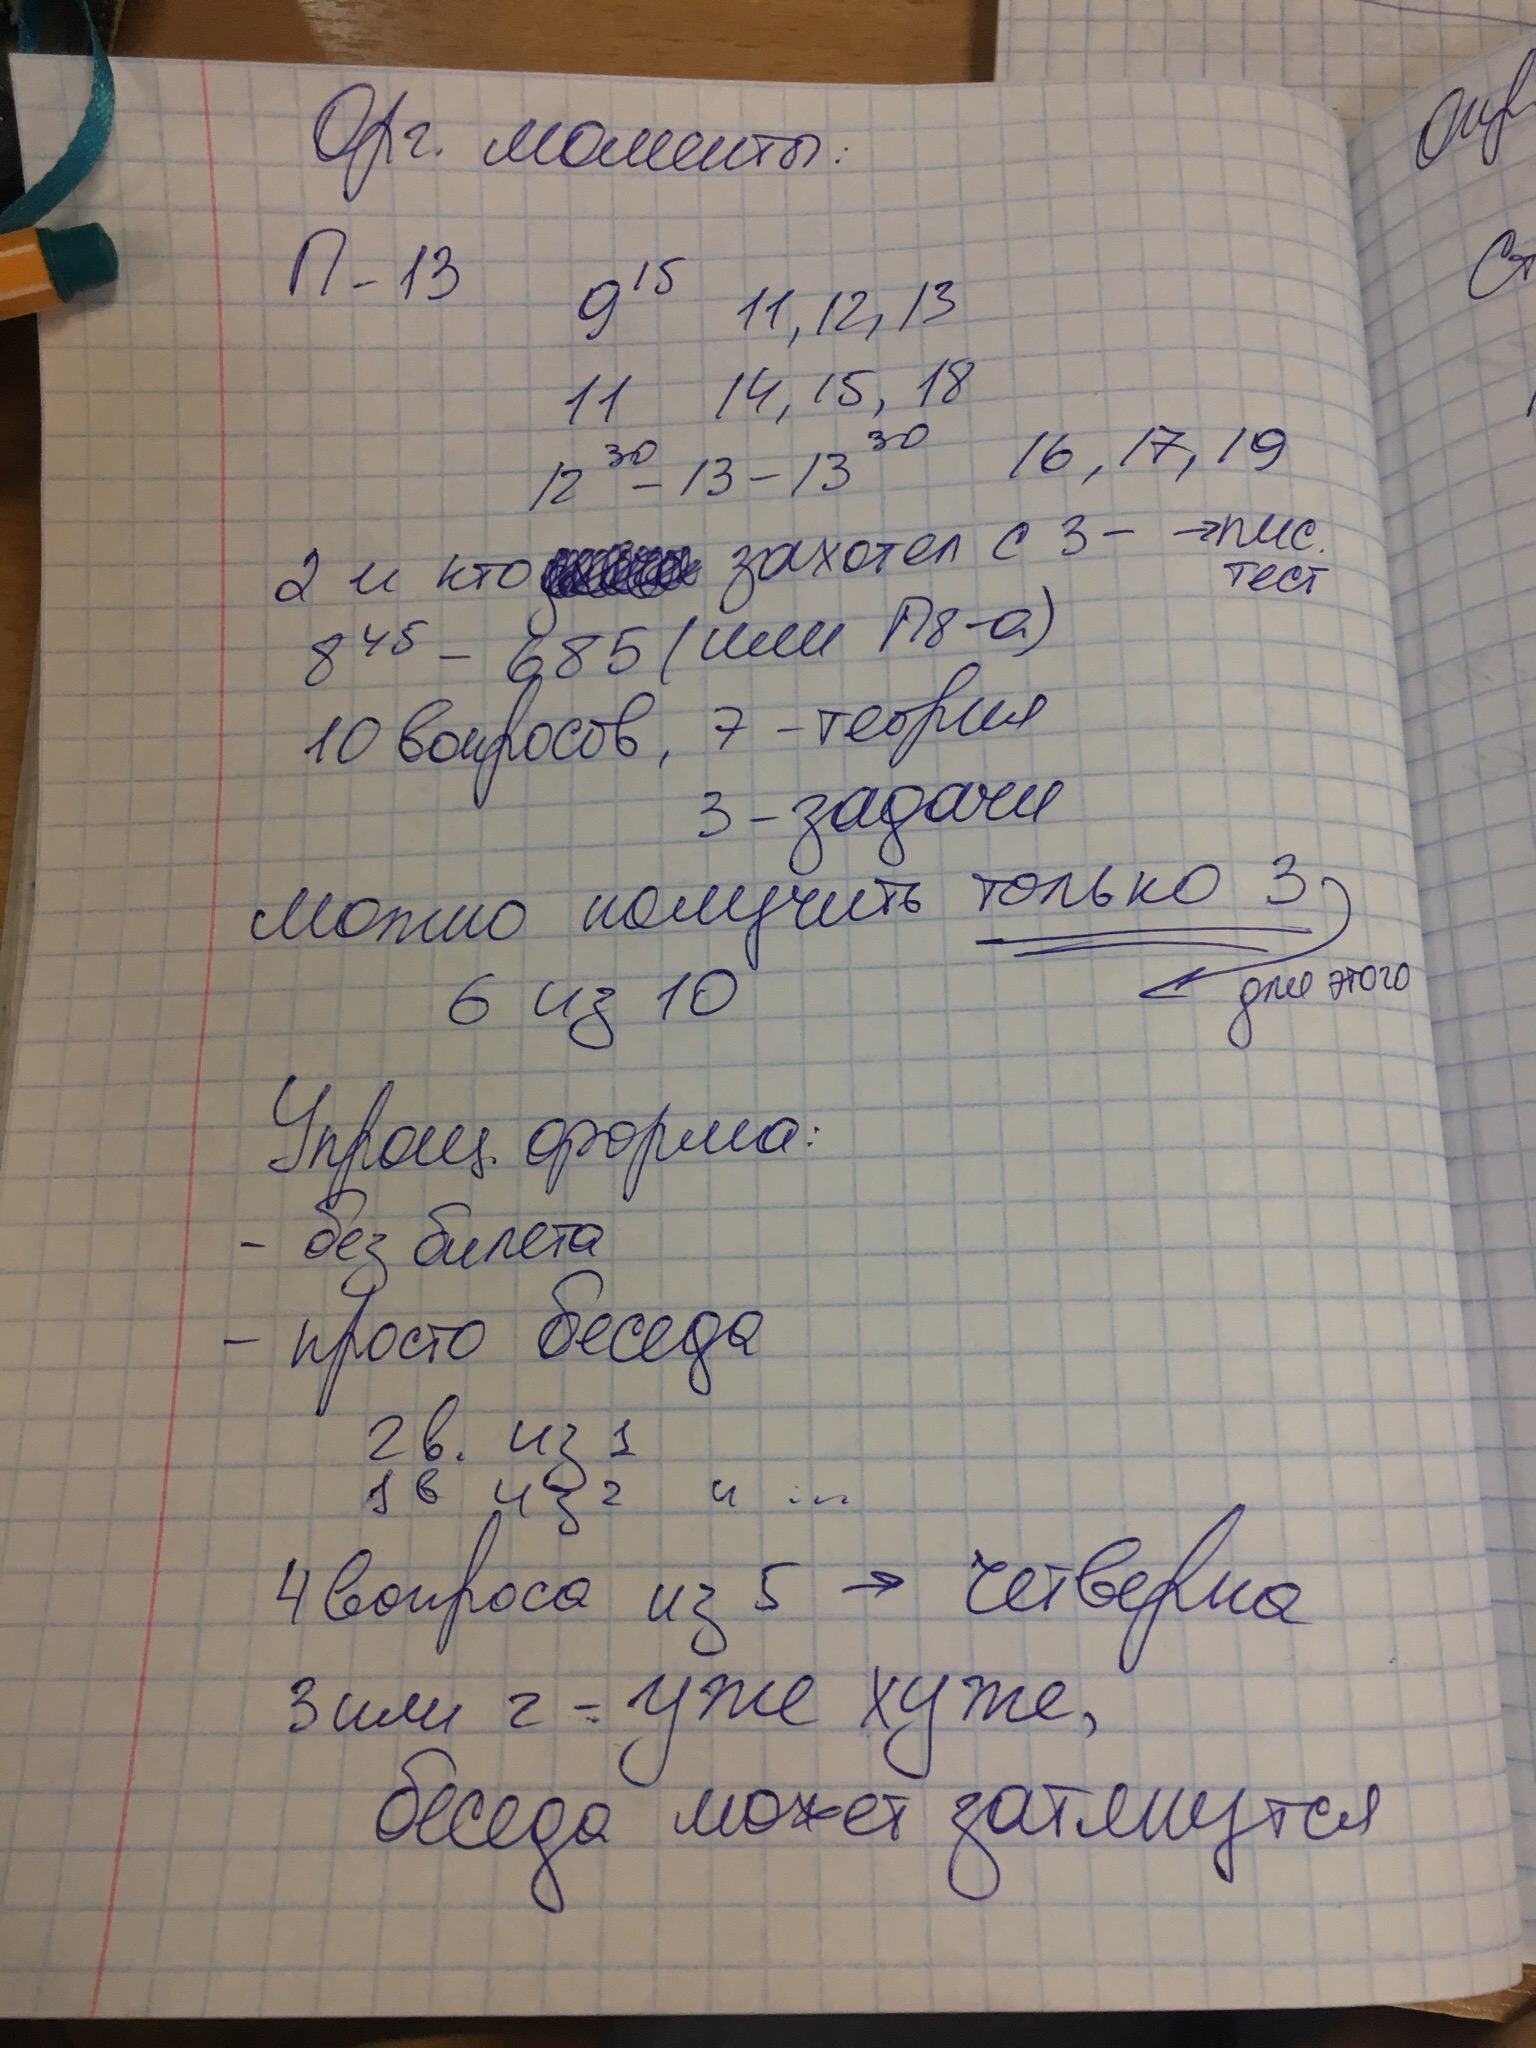 Орг. моменты:
П-13
9 15 11, 12, 13
11 14, 15, 18
12 30 - 13 - 13 30 16, 17, 19
2 и кто захотел с 3- → пис. тест
8 45 - 685 (или П8-а)
10 вопросов, 7 - теория
3 - задачи
Можно получить только 3
для этого
6 из 10
Упрощ. форма:
- без билета
- просто беседа
2 в. из 1
1 в из 2 и ...
4 вопроса из 5 → четверка
3 или 2 - уже хуже,
беседа может затянутся